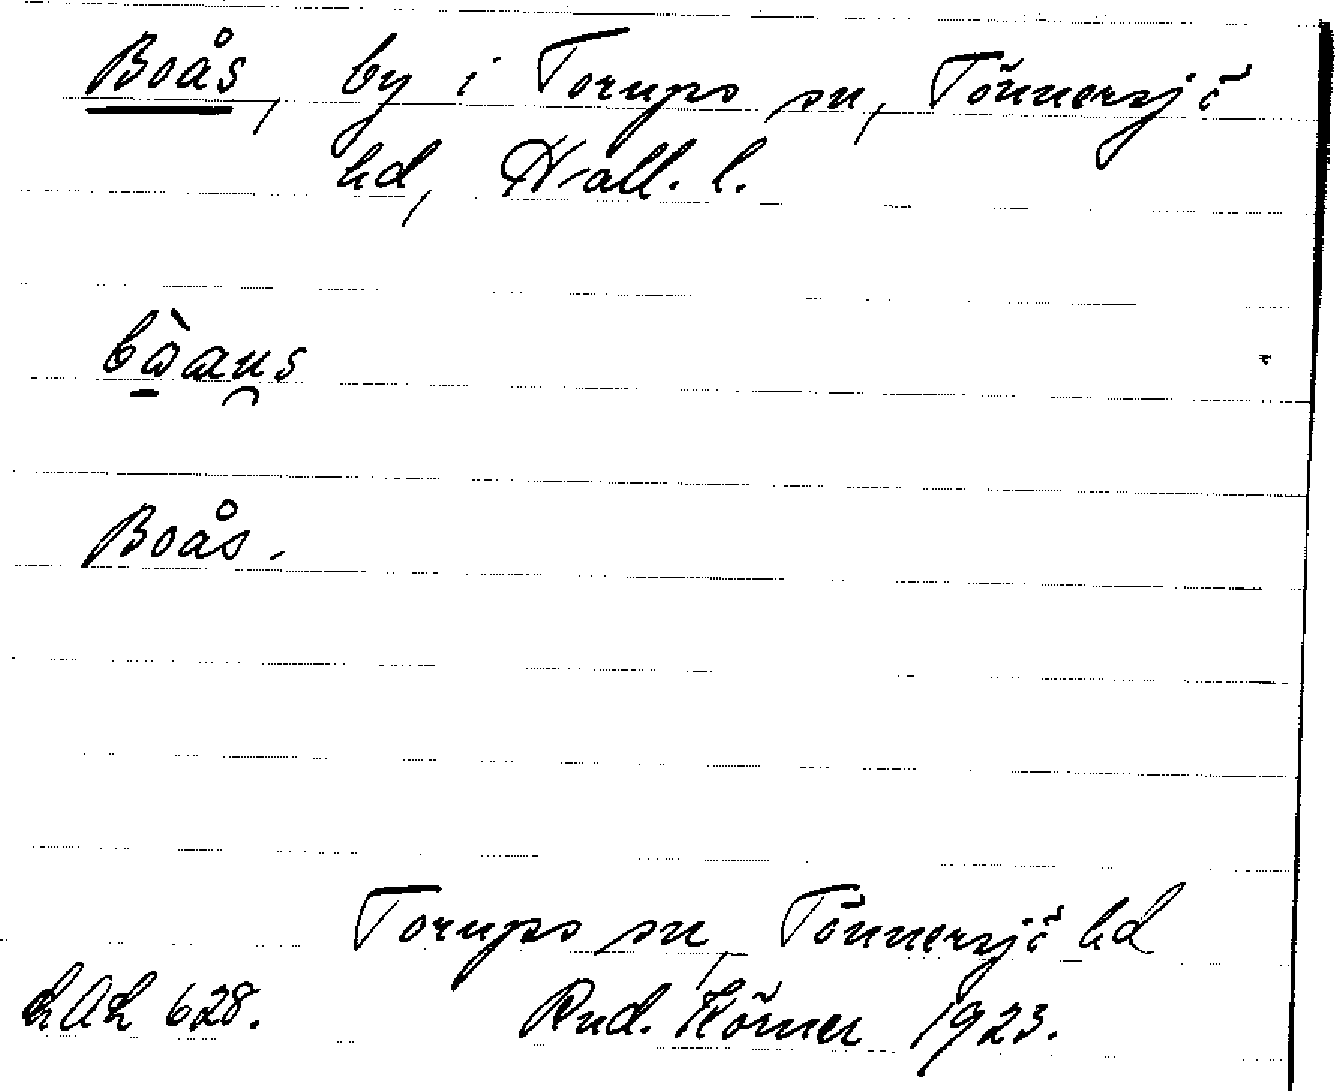 Boås, by i Torups sn, Tönnersjö
hd, Hall. l.
Boås.
Torups sn, Tönnersjö hd
628. Rud. Körner 1923.